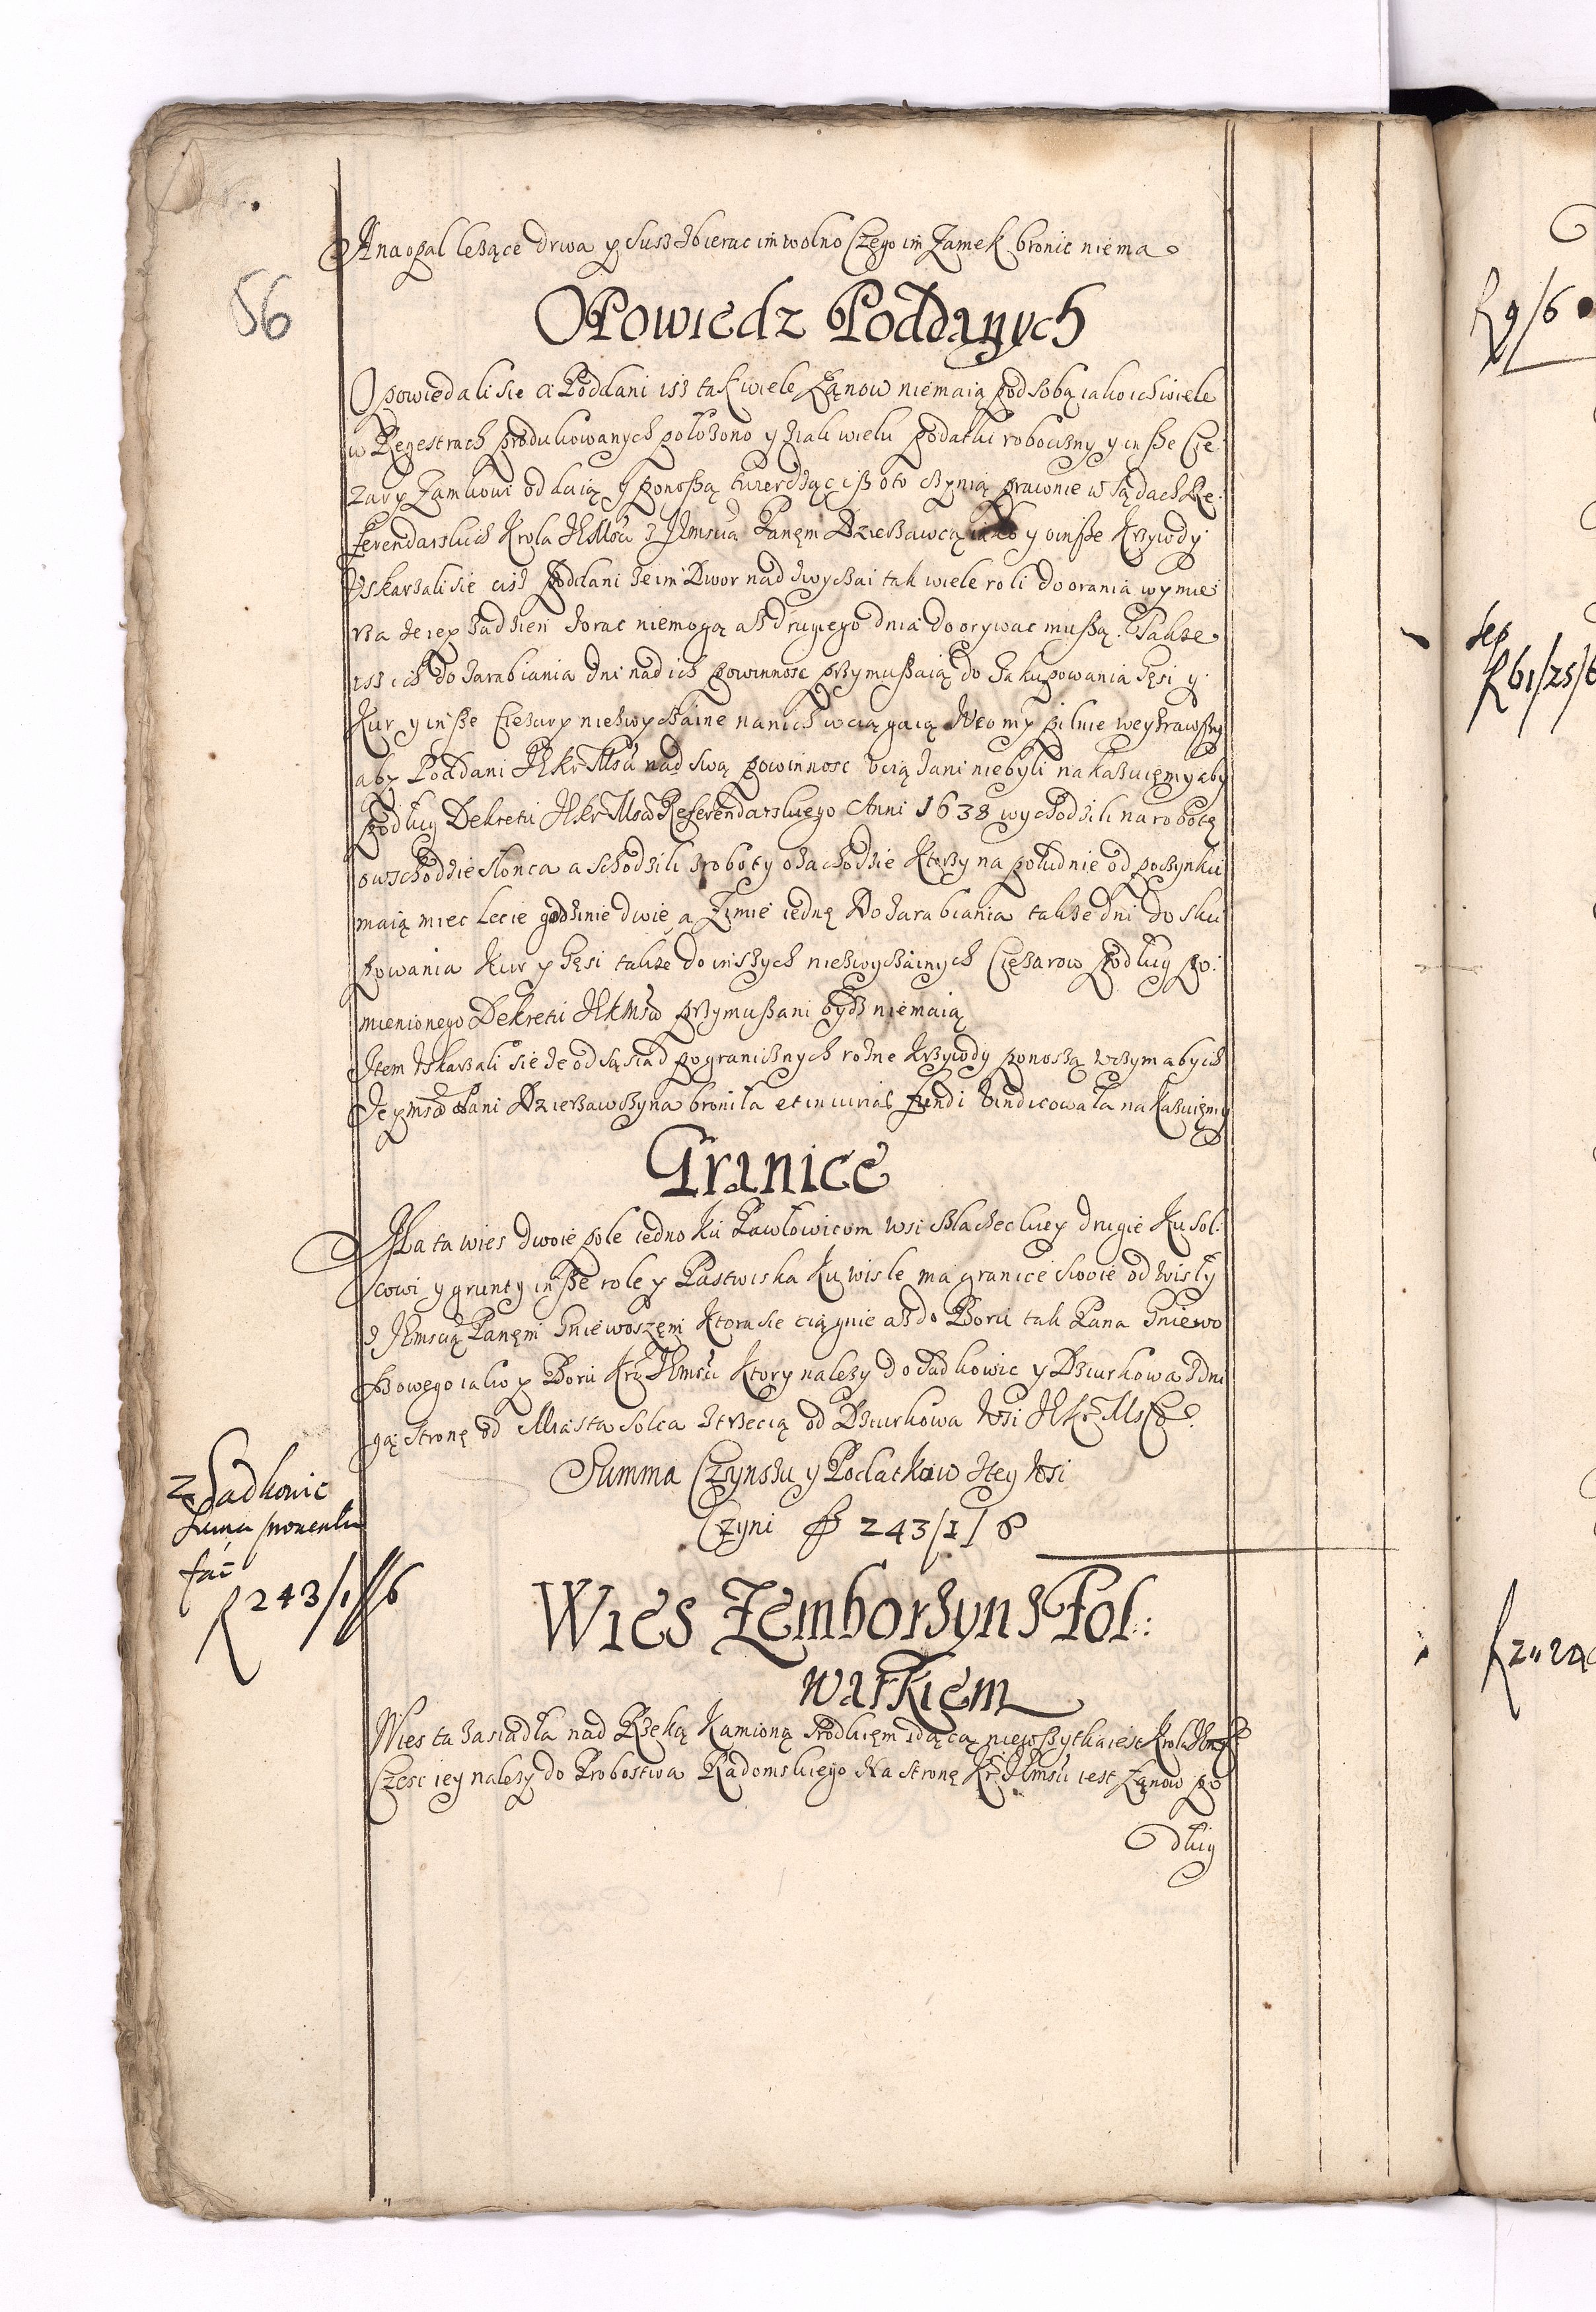 A na opał leżące drwa y susz zbierac im wolno Czego im Zamek bronic niema
56
Opowiedz Poddanych
Opowiedali sie ci Poddani isz tak wiele Łanow niemaią pod sobą iako ich wiele
w Regestrach produkowanych położono y z iak wielu podatki robocizny y insze Cię:
zary Zamkowi oddaią y ponoszą twierdząc isz o to czynią prawnie w Sądach Re:
ferendarskich Krola JEMści z JEmścią Panem Dzierzawcą iako y o insze Krzywdy
Uskarzali sie ciż Poddani że im Dwor nad zwyczai tak wiele roli do orania wymie
rza że iey za dzien zorac niemogą asz drugiego dnia doorywac muszą. Także
isz ich do zarabiania dni nad ich powinnosc przymuszaią do zakupowania Gęsi y
Kur y insze Ciężary niezwyczaine na nich wciągaią W co my pilnie weyzrawszy
aby Poddani JEKr Mści nad swą powinnosc uciążani niebyli nakazuięmy aby
podług Dekretu JEKr Mści Referendarskiego Anni 1638 wychodzili na robotę
o wschodzie słonca a schodzili z roboty o zachodzie Ktorzy na południe odpoczynku
maią miec Lecie godzinie dwie a Zimie iednę Do zarabiania także dni do sku
powania Kur y Gęsi także do inszych niezwyczainych Ciężarow podług po:
mienionego Dekretu JEKMści przymuszani bydz niemaią
Item Uskarzali się że od sąsiad pogranicznych rożne Krzywdy ponoszą w czym aby ich
Jeymść Pani Dzierzawczyna broniła et iniurias fundi vindicowała nakazuięmy
Granice
Ma ta wies dwoie pole iedno ku Pawłowicom wsi szlacheckiey drugie Ku Sol:
cowi y grunty insze role y Pastwiska Ku wisle ma granice swoie od Wisły
z JEmścią Panem Gniewoszem Ktora sie ciągnie asz do Boru tak Pana Gniewo
szowego iako y Boru Kr JEmści Ktory należy do Sadkowic y Dziurkowa z dru
gą stronę od Miasta Solca z trzecią od Dziurkowa Wsi JEKr Mści
Summa Czynszu y Podatkow z tey Wsi
Czyni f 243/1/6
z Sadkowic
Suma proventu
fac
f 243/1//6
Wies Zemborzyn z Fol:
warkiem
Wies ta zasiadła nad Rzeką Kamioną srodkięm idącą niewszytka iest Krola JEmści
Częsc iey należy do Probostwa Radomskiego Na stronę Kr JEmści iest Łanow po
dług
f 9/6
f 61/25/6